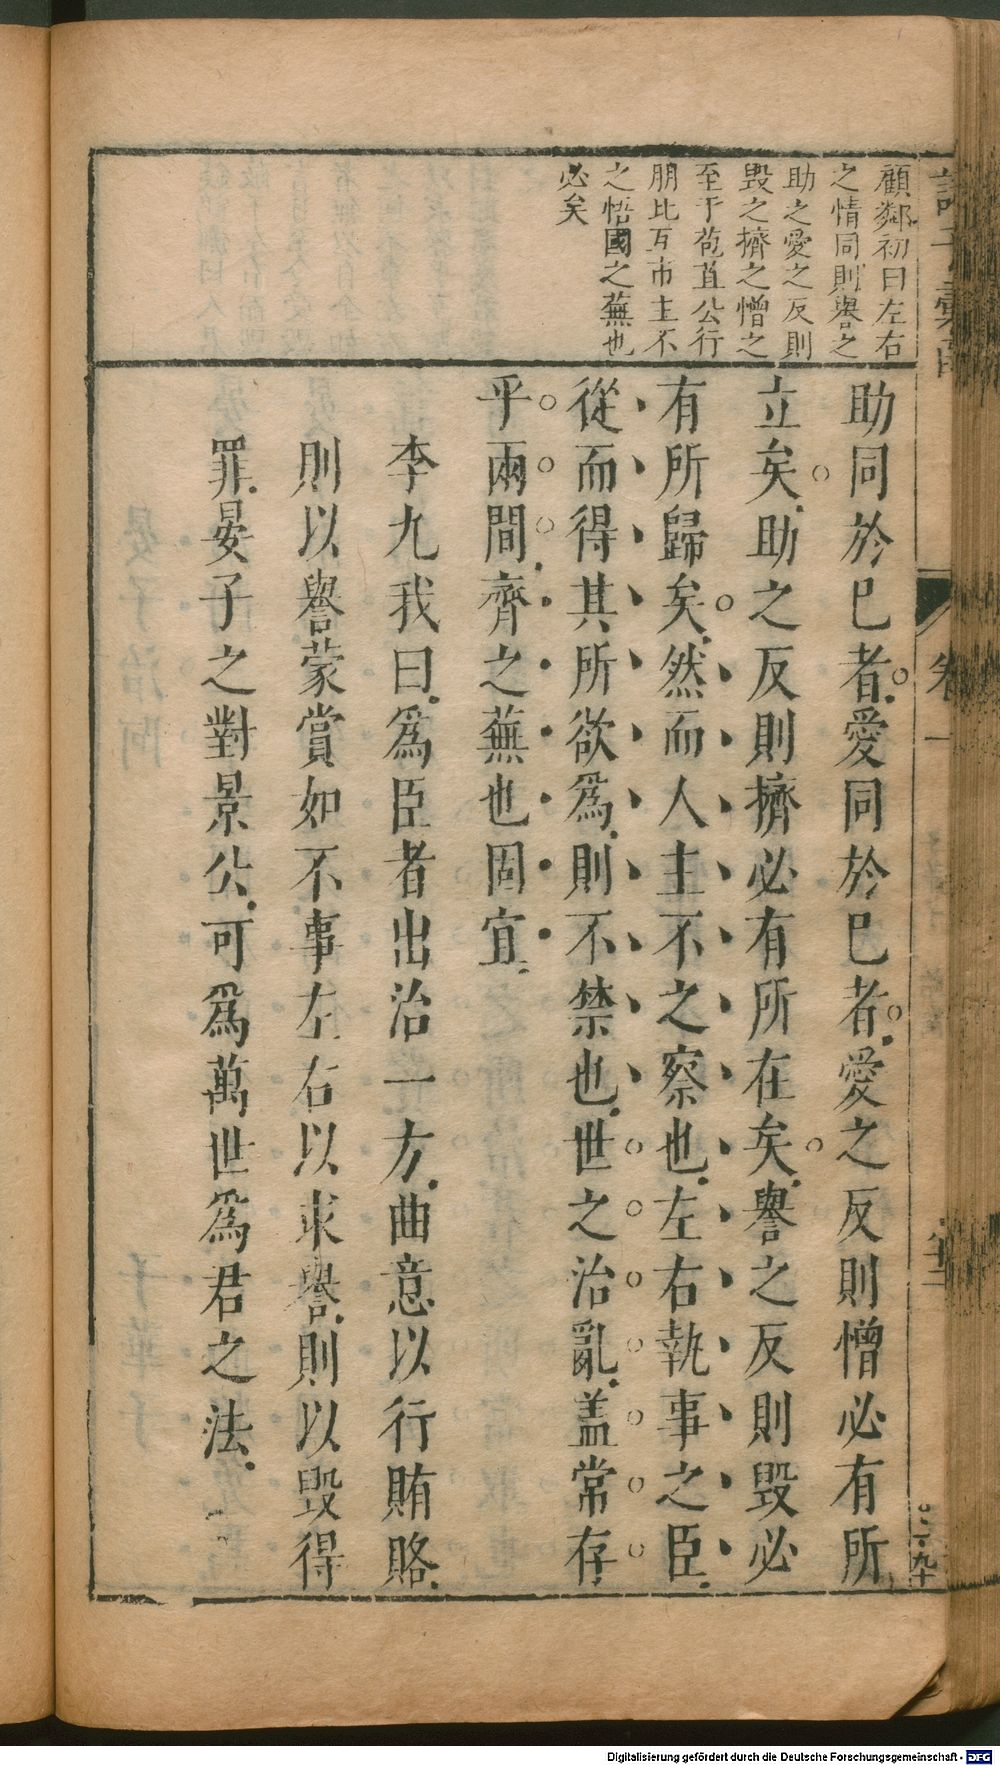 顧鄰初曰左右
之情同則譽之
助之愛之反則
毀之擠之憎之
至于苞苴公行
朋比互市主不
之悟國之蕪也
必矣
助同於巳者愛同於巳者愛之反則憎必有所
立矣助之反則擠必有所在矣譽之反則毀必
有所歸矣然而人主不之察也左右執事之臣
從而得其所欲爲則不禁也世之治亂盖常存
乎兩間齊之蕪也固宜
李九我曰爲臣者出治一方曲意以行賄賂
則以譽蒙賞如不事左右以求譽則以毀得
罪晏子之對景公可爲萬世爲君之法
卷一
Digitalisierung gefördert durch die Deutsche Forschungsgemeinschaft - DFG